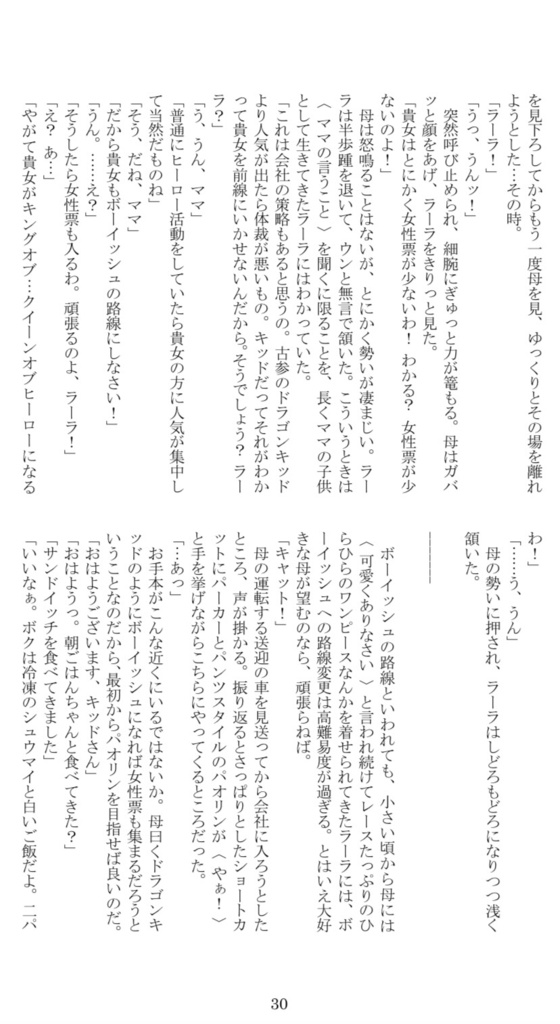 を見下ろしてからもう一度母を見、ゆっくりとその場を離れ
ようとした…その時。
「ラーラ！」
「うっ、うんッ！」
　突然呼び止められ、細腕にぎゅっと力が篭もる。母はガバ
ッと顔をあげ、ラーラをきりっと見た。
「貴女はとにかく女性票が少ないわ！　わかる？　女性票が少
ないのよ！」
　母は怒鳴ることはないが、とにかく勢いが凄まじい。ラー
ラは半歩踵を退いて、ウンと無言で頷いた。こういうときは
〈ママの言うこと〉を聞くに限ることを、長くママの子供
として生きてきたラーラにはわかっていた。
「これは会社の策略もあると思うの。古参のドラゴンキッド
より人気が出たら体裁が悪いもの。キッドだってそれがわか
って貴女を前線にいかせないんだから。そうでしょう？　ラー
ラ？」
「う、うん、ママ」
「普通にヒーロー活動をしていたら貴女の方に人気が集中し
て当然だものね」
「そう、だね、ママ」
「だから貴女もボーイッシュの路線にしなさい！」
「うん。……え？」
「そうしたら女性票も入るわ。頑張るのよ、ラーラ！」
「え？　あ…」
「やがて貴女がキングオブ…クイーンオブヒーローになる
わ！」
「……う、うん」
　母の勢いに押され、ラーラはしどろもどろになりつつ浅く
頷いた。
――――
　ボーイッシュの路線といわれても、小さい頃から母には
〈可愛くありなさい〉と言われ続けてレースたっぷりのひ
らひらのワンピースなんかを着せられてきたラーラには、ボ
ーイッシュへの路線変更は高難易度が過ぎる。とはいえ大好
きな母が望むのなら、頑張らねば。
「キャット！」
　母の運転する送迎の車を見送ってから会社に入ろうとした
ところ、声が掛かる。振り返るとさっぱりとしたショートカ
ットにパーカーとパンツスタイルのパオリンが〈やぁ！〉
と手を挙げながらこちらにやってくるところだった。
「…あっ」
　お手本がこんな近くにいるではないか。母曰くドラゴンキ
ッドのようにボーイッシュになれば女性票も集まるだろうと
いうことなのだから、最初からパオリンを目指せば良いのだ。
「おはようございます、キッドさん」
「おはようっ。朝ごはんちゃんと食べてきた？」
「サンドイッチを食べてきました」
「いいなぁ。ボクは冷凍のシュウマイと白いご飯だよ。二パ
30